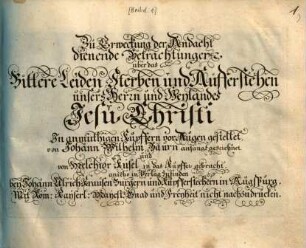 (Beibd. 1)
1.
Zu Erweckung der Andacht
dienende Betrachtungen
über das
Bittere Leiden Sterben und Aufferstehen
unsers Herrn und Heylandes
Jesu Christi
In anmuthigen Kupffern vor Augen gestellet
von Johann Wilhelm Baurn anfangs gezeichnet
und
von Melchior Küsel in das Kupffer gebracht,
anitzo in Verlag zufinden
bey Johann Ulrich Kraussen Burgern und Kupfferstechern in Augspurg.
Mit Röm: Kayserl: Mayest: Gnad und Freyheit nicht nachzudrucken.